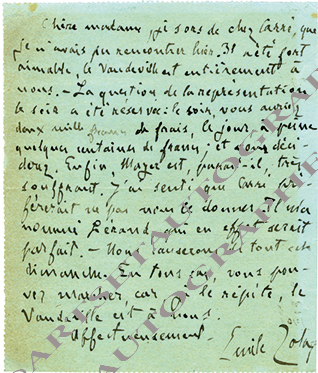 Chère madame, je sors de chez Carré, que
je n'avais pu rencontrer hier. Il a été fort
aimable, le Vaudeville est entièrement à
nous. — La question de la représentation
le soir a été réservée : le soir, vous auriez
deux mille francs de frais, le jour, à peine
quelques centaines de francs ; et vous déci-
derez. Enfin, Mayer est, paraît-il, très
souffrant. J'ai senti que Carré pré-
férerait ne pas nous le donner. Il m'a
nommé Pérand, qui en effet serait
parfait. — Nous causerons de tout cela
dimanche. En tous cas, vous pou-
vez marcher, car je le répète, le
Vaudeville est à nous.
Affectueusement.
Emile Zola